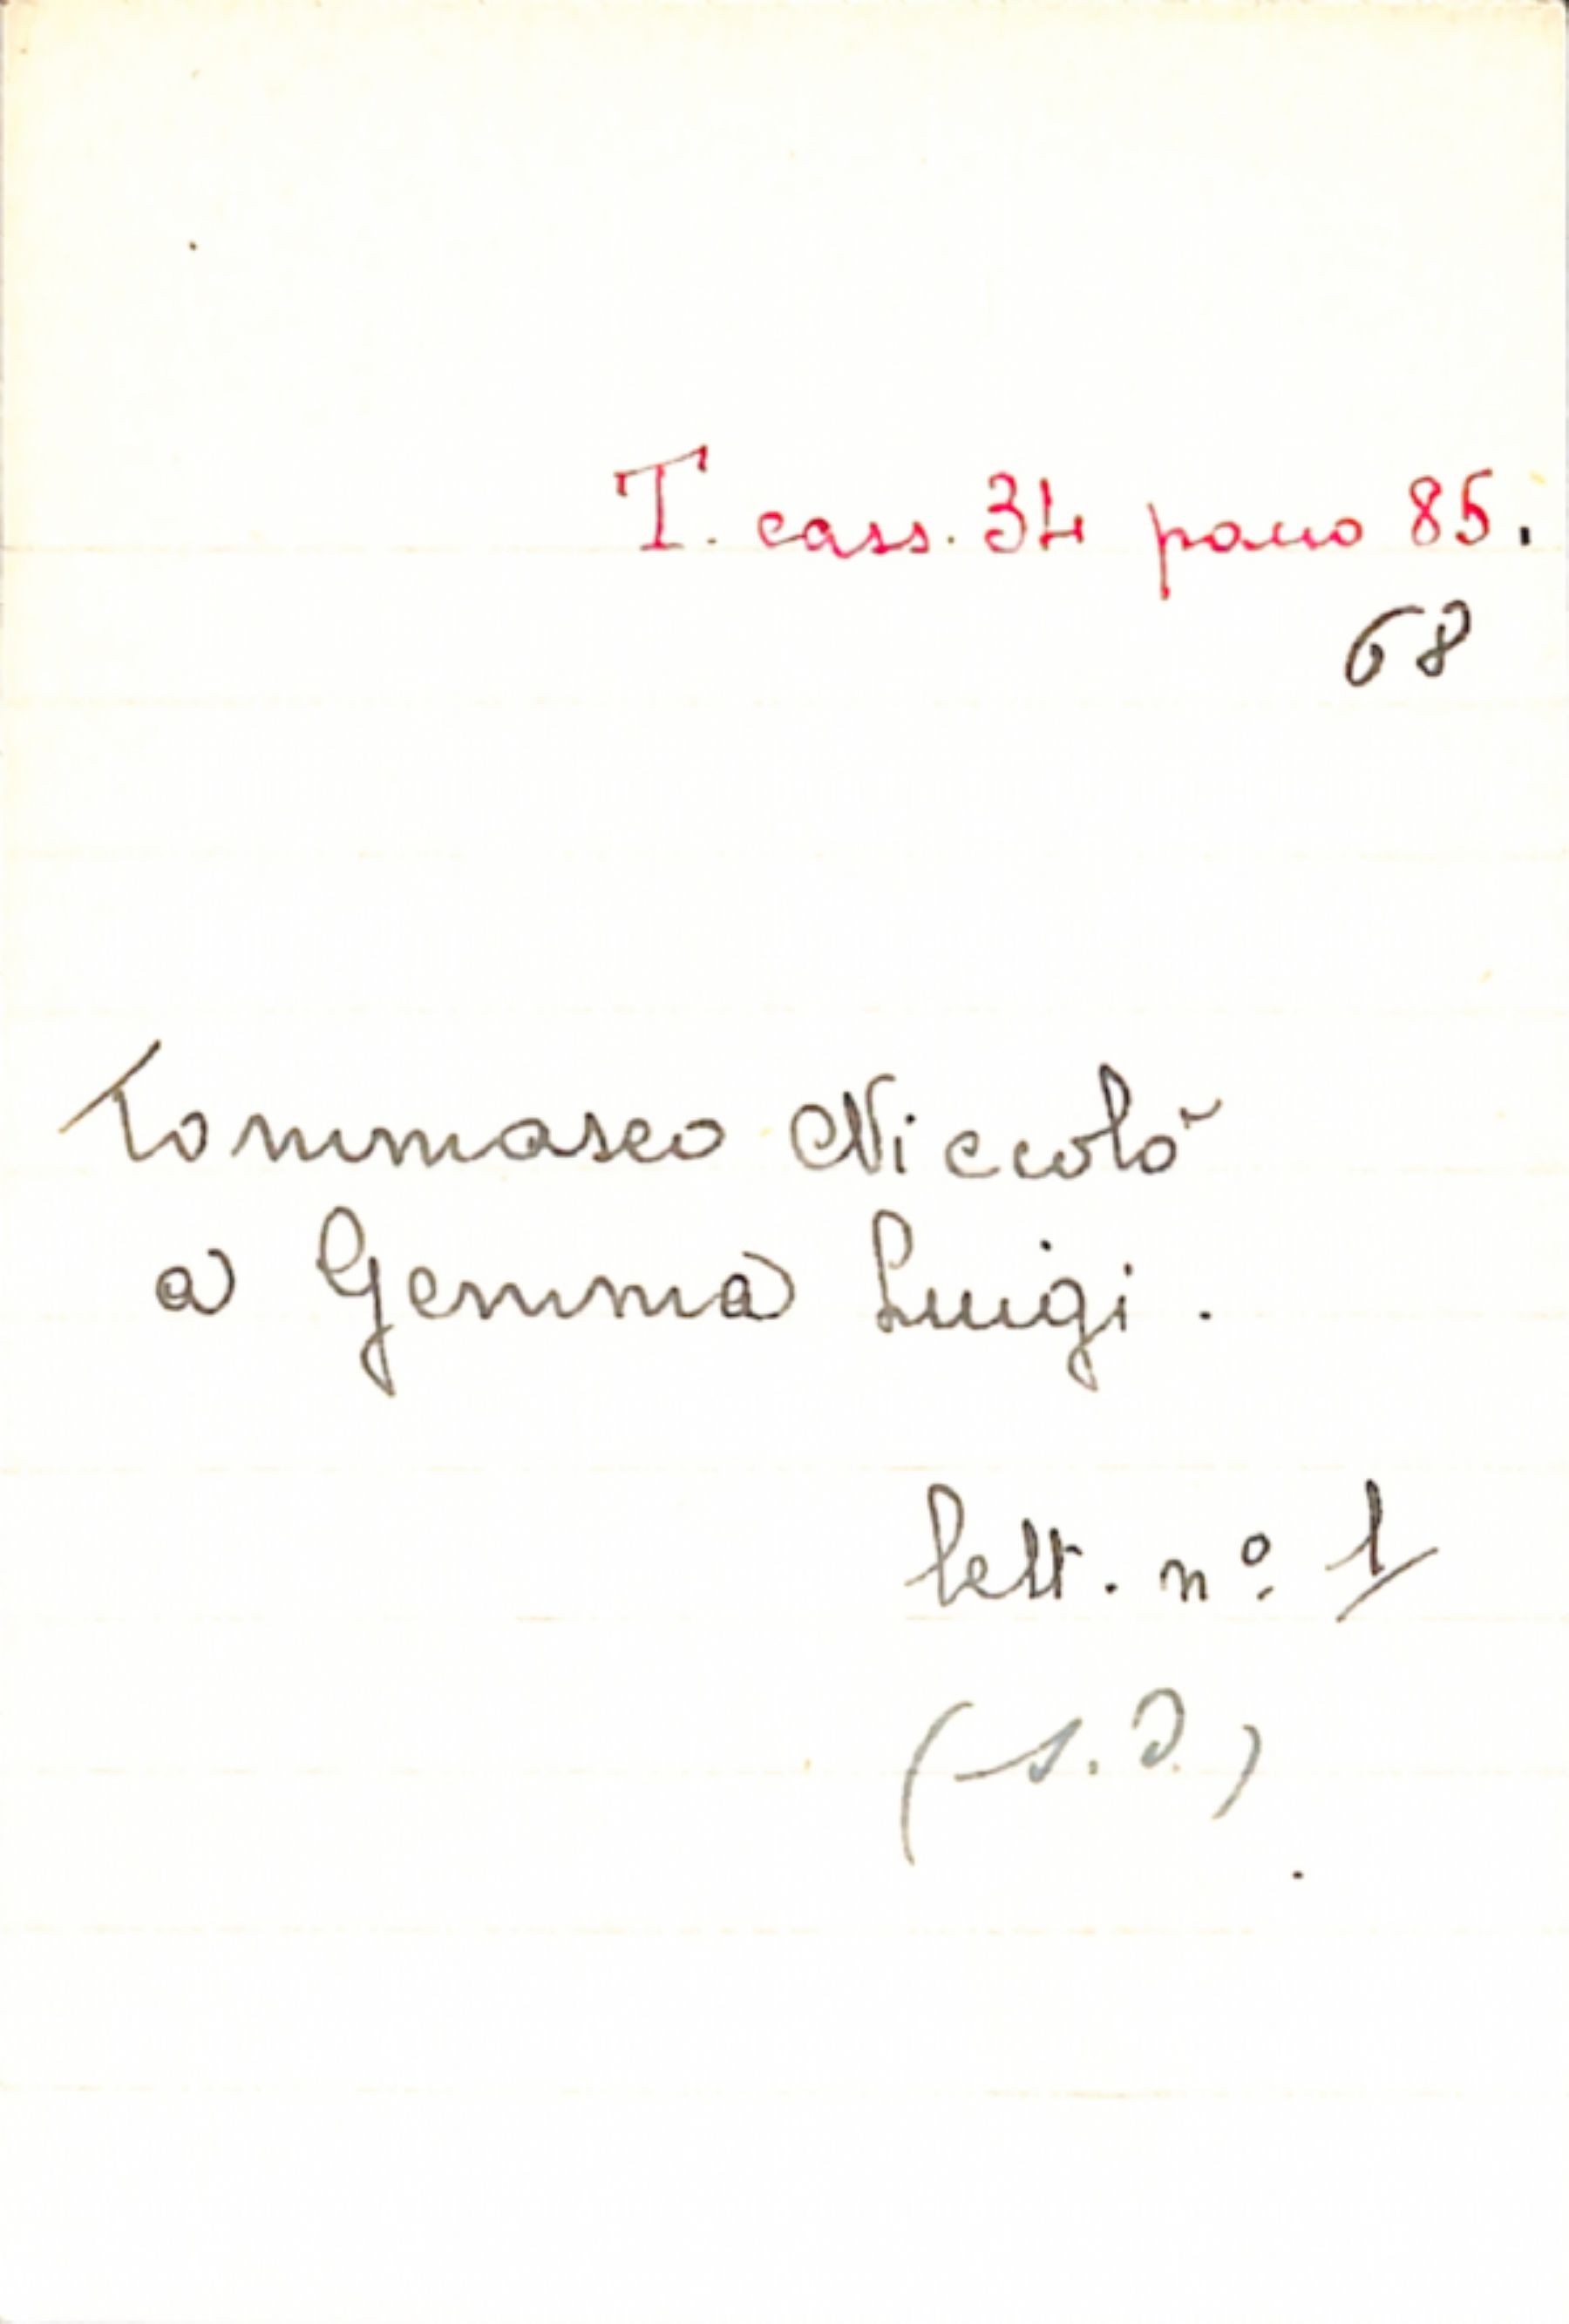 T. cass. 34 pacco 85.
68
Tommaseo Niccolò
a Gemma Luigi.
lett. nº 1
(s. d.)